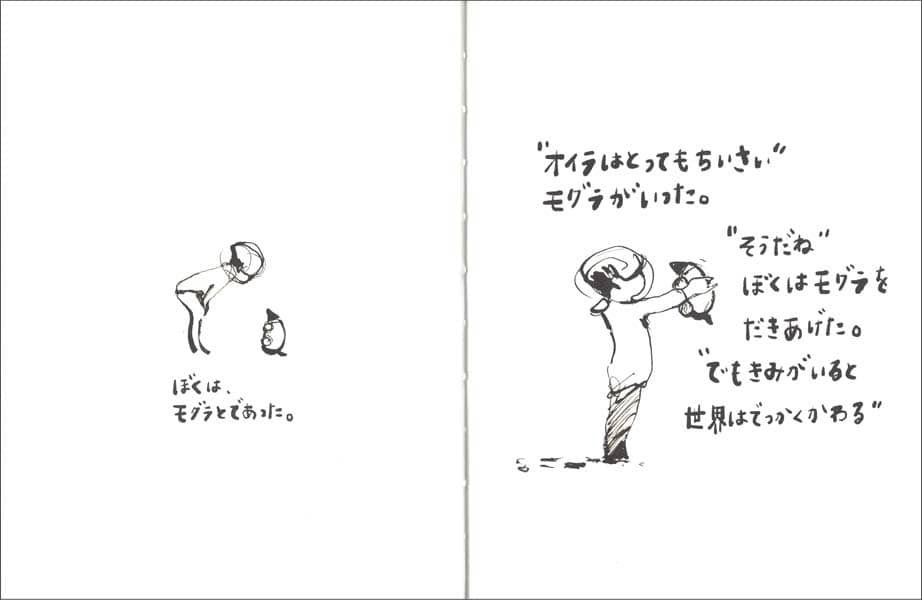 ぼくは、
モグラとであった。
“オイラはとってもちいさい“
モグラがいった。
“そうだね”
ぼくはモグラを
だきあげた。
“でもきみがいると
世界はでっかくかわる”